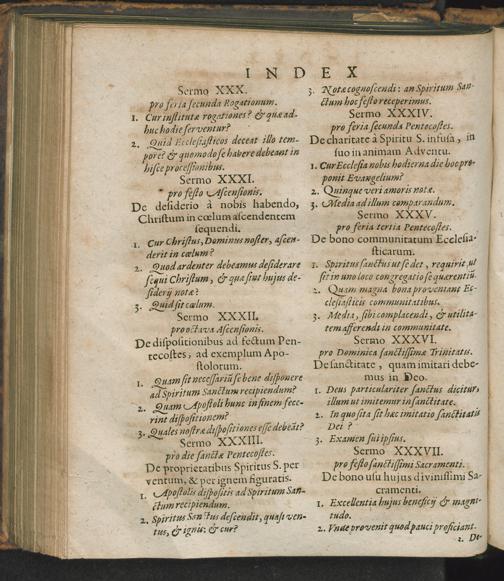 INDEX
Sermo XXX.
pro feria secunda Rogationum.
1. Cur institutæ rogationes? & quæ ad-
huc hodie serventur?
2. Quid Ecclesiasticos deceat illo tem-
pore? & quomodo se habere debeant in
hisce processionibus.
Sermo XXXI.
pro festo Ascensionis.
De desiderio à nobis habendo,
Christum in cœlum ascendentem
sequendi.
1. Cur Christus, Dominus noster, ascen-
derit in cœlum?
2. Quod ardenter debeamus desiderare
sequi Christum, & quæ sint hujus de-
siderij notæ?
3. Quid sit cœlum.
Sermo XXXII.
pro octava Ascensionis.
De dispositionibus ad festum Pen-
tecostes, ad exemplum Apo-
stolorum.
1. Quam sit necessariũ se bene disponere
ad Spiritum Sanctum recipiendum?
2. Quam Apostoli hunc in finem fece-
rint dispositionem?
3. Quales nostræ dispositiones esse debeãt?
Sermo XXXIII.
pro die sanctæ Pentecostes.
De proprietatibus Spiritus S. per
ventum, & per ignem figuratis.
1. Apostolis dispositis ad Spiritum San-
ctum recipiendum.
2. Spiritus Sanctus descendit, quasi ven-
tus, & ignis: & cur?
3. Notæ cognoscendi: an Spiritum San-
ctum hoc festo receperimus.
Sermo XXXIV.
pro feria secunda Pentecostes.
De charitate à Spiritu S. infusa, in
suo in animam Adventu.
1. Cur Ecclesia nobis hodierna die hoc pro-
ponit Evangelium?
2. Quinque veri amoris notæ.
3. Media ad illum comparandum.
Sermo XXXV.
pro feria tertia Pentecostes.
De bono communitatum Ecclesia-
sticarum.
1. Spiritus sanctus ut sedet, requirit, ut
sit in uno loco congregatio sequentiũ.
2. Quam magna bona proveniant Ec-
clesiasticis communitatibus.
3. Media, sibi complacendi, & utilita-
tem afferendi in communitate.
Sermo XXXVI.
pro Dominica sanctissimæ Trinitatis.
De sanctitate, quam imitari debe-
mus in Deo.
1. Deus particulariter sanctus dicitur,
illum ut imitemur in sanctitate.
2. In quo sita sit hæc imitatio sanctitatis
Dei?
3. Examen sui ipsius.
Sermo XXXVII.
pro festo sanctissimi Sacramenti.
De bono usu hujus divinissimi Sa-
cramenti.
1. Excellentia hujus beneficij & magni-
tudo.
2. Unde provenit quod pauci proficiant.
2. De-